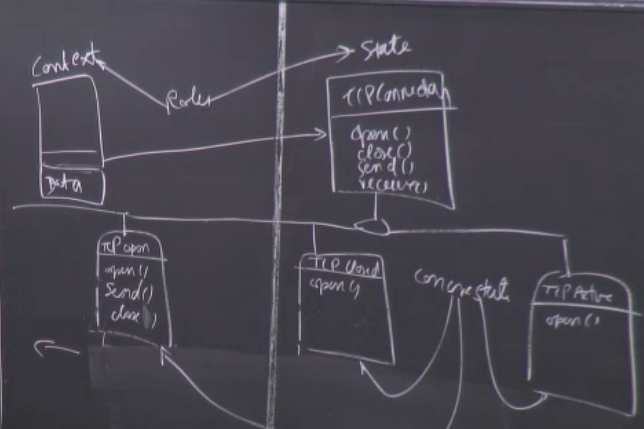 Context
State
Roles
TCPConnection
open()
close()
send()
receive()
Data
TCP open
open()
Send()
close()
TCP Closed
open()
Concrete state
TCP Active
open()